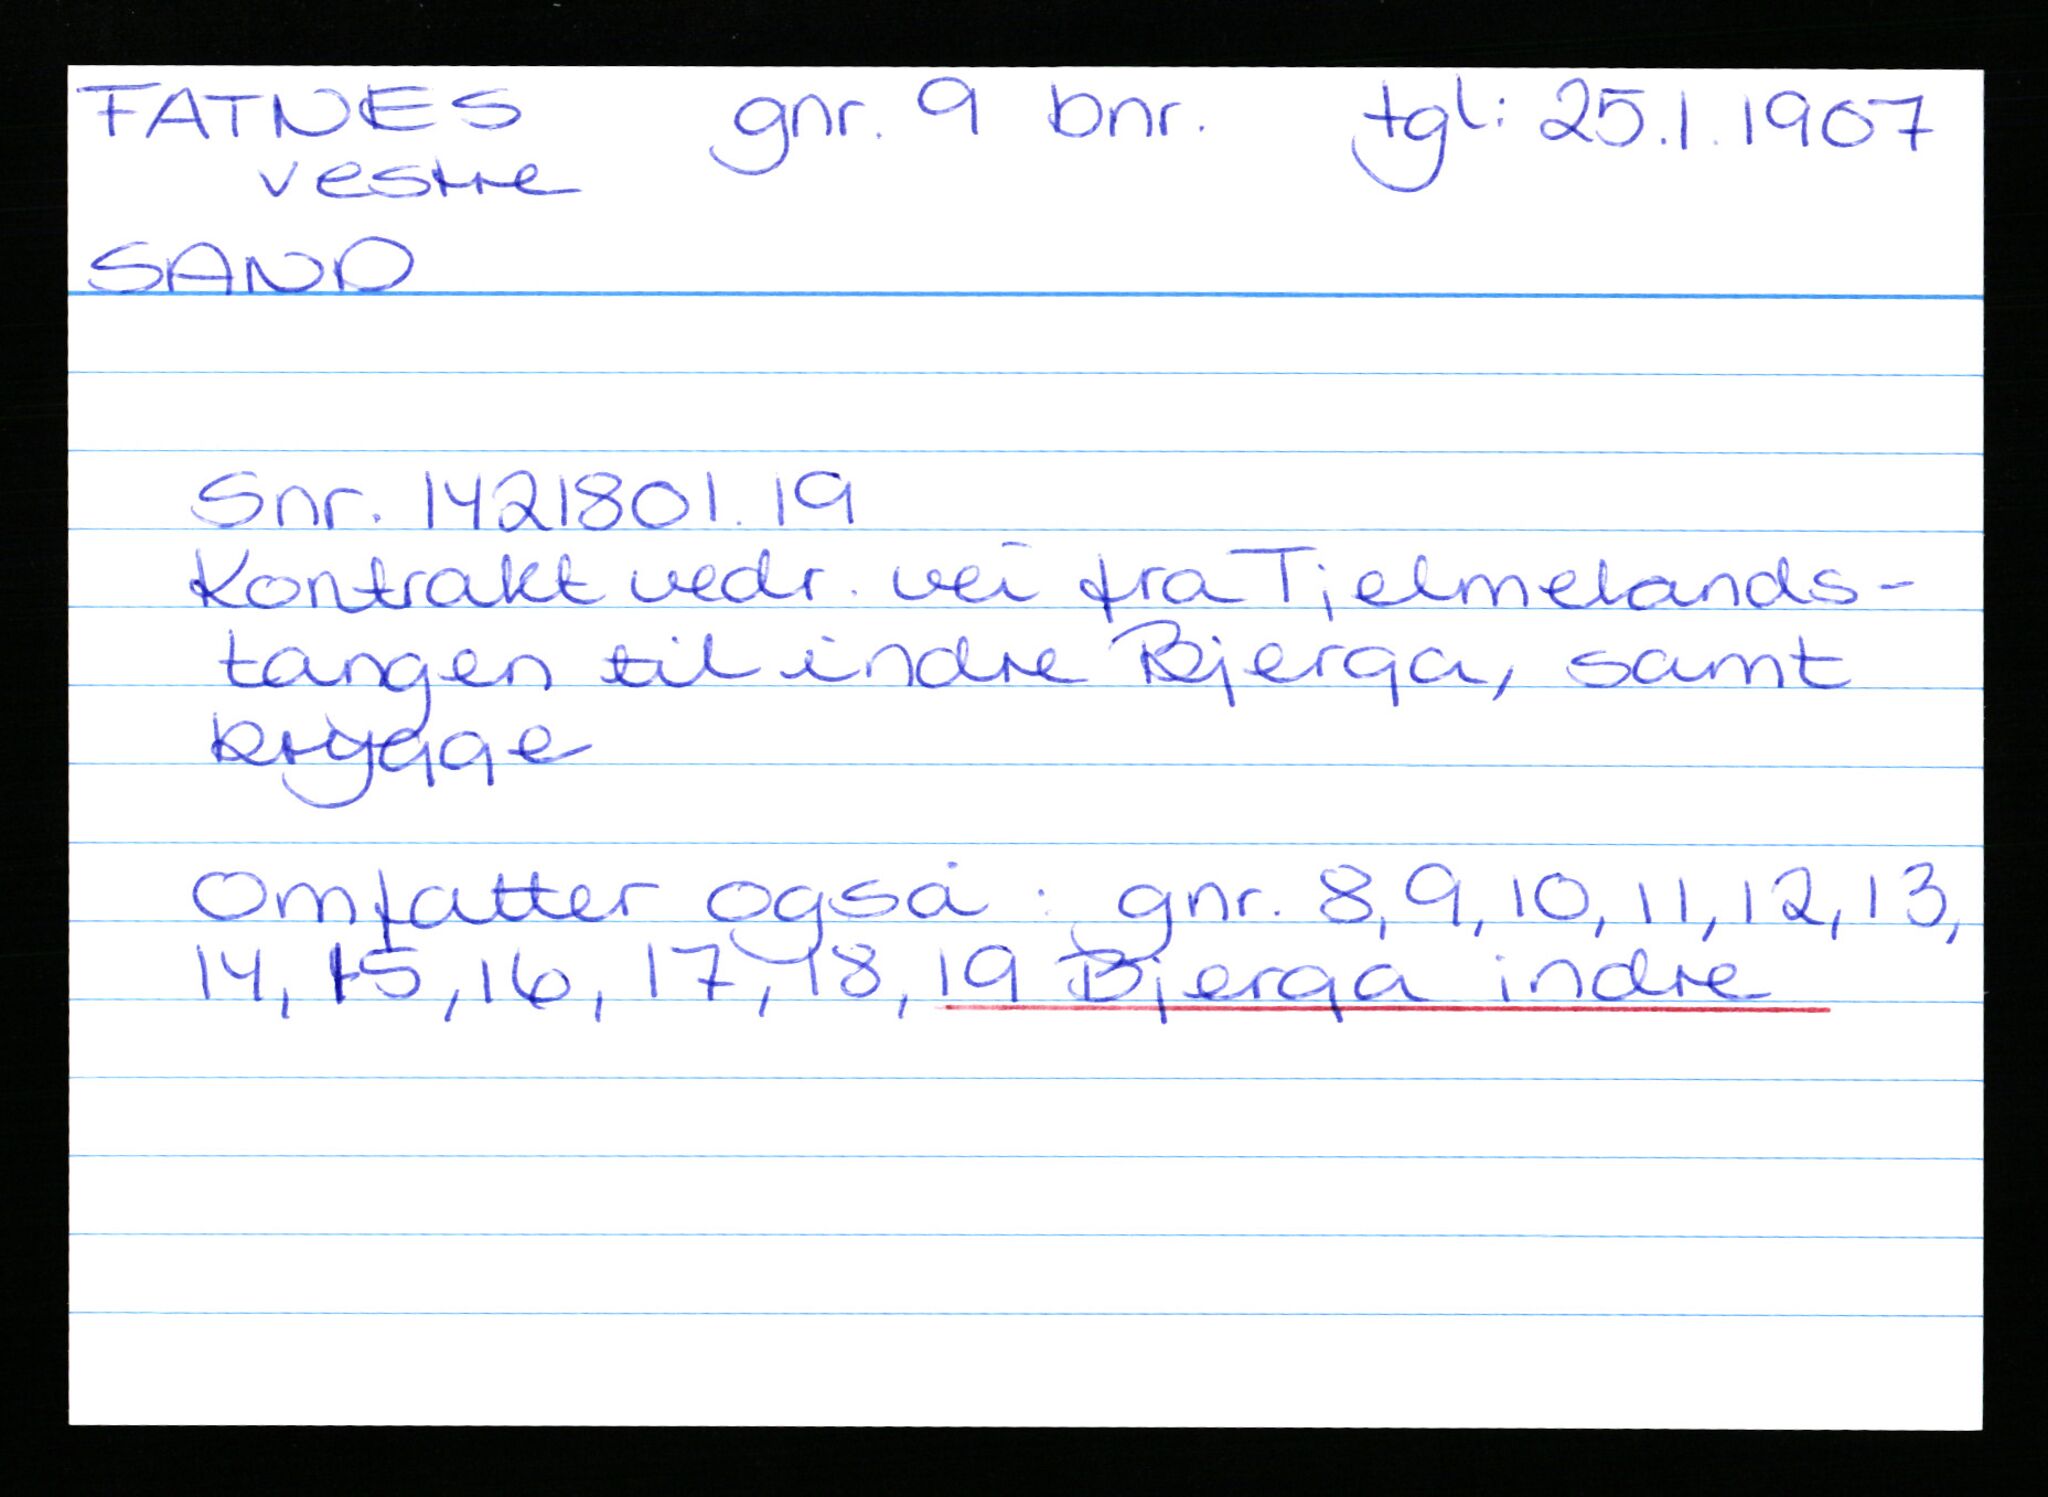 FATNES gnr. 9 bnr. tgl: 25.1.1907
vestre
SAND
Snr. 1421801.19
Kontrakt vedr. vei fra Tjelmelands-
tangen til indre Bjerga, samt
brygge
Omfatter også: gnr. 8, 9, 10, 11, 12, 13,
14, 15, 16, 17, 18, 19 Bjerga indre